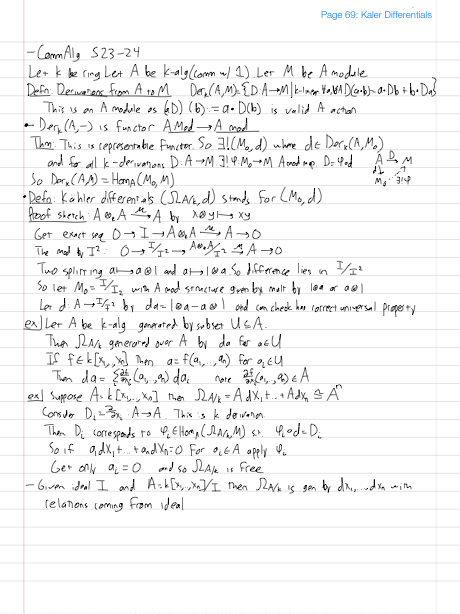 Page 69: Kaler Differentials
- CommAlg S23-24
Let k be ring Let A be k-alg (comm w/ 1) Let M be A module
Defn: Derivations from A to M Der_k(A,M) = {D: A→M | k-linear ∀a,b∈A D(a·b) = a·Db + b·Da}
This is an A module as (aD)(b) := a·D(b) is valid A action
- Der_k(A,-) is functor A Mod → A mod
Thm: This is representable functor. So ∃!(M₀,d) where d∈Der_k(A,M₀)
and for all k-derivations D: A→M ∃!φ: M₀→M A mod map. D=φ∘d
A →D M
d↓ M₀ ∃!φ
So Der_k(A,M) = Hom_A(M₀,M)
• Defn: Kahler differentials (Ω_{A/k},d) stands for (M₀,d)
Proof sketch: A⊗_k A →μ A by x⊗y ↦ xy
Get exact seq 0→I→A⊗_k A →μ A→0
The mod by I²: 0→I/I²→A⊗_k A/I² →μ A→0
Two splitting a↦a⊗1 and a↦1⊗a. So difference lies in I/I²
So let M₀ = I/I² with A mod structure given by mult by 1⊗a or a⊗1
Let d: A→I/I² by da = 1⊗a - a⊗1 and can check has correct universal property
ex] Let A be k-alg generated by subset U⊆A.
Then Ω_{A/k} generated over A by da for a∈U
If f∈k[x₁,..,xₙ] then a = f(a₁,..,aₙ) for aᵢ∈U
Then da = Σ∂f/∂xᵢ(a₁,..,aₙ)daᵢ note ∂f/∂xᵢ(a₁,..,aₙ)∈A
ex] Suppose A = k[x₁,..,xₙ] then Ω_{A/k} = A dX₁+..+A dXₙ ≅ Aⁿ
Consider Dᵢ = ∂/∂xᵢ: A→A. This is k derivation.
Then Dᵢ corresponds to φᵢ∈Hom_A(Ω_{A/k},M) s.t. φᵢ∘d = Dᵢ
So if a₁dX₁+..+aₙdXₙ=0 for aᵢ∈A apply φᵢ
Get only aᵢ=0 and so Ω_{A/k} is free
- Given ideal I and A=k[x₁,..,xₙ]/I then Ω_{A/k} is gen by dx₁,..,dxₙ with
relations coming from ideal